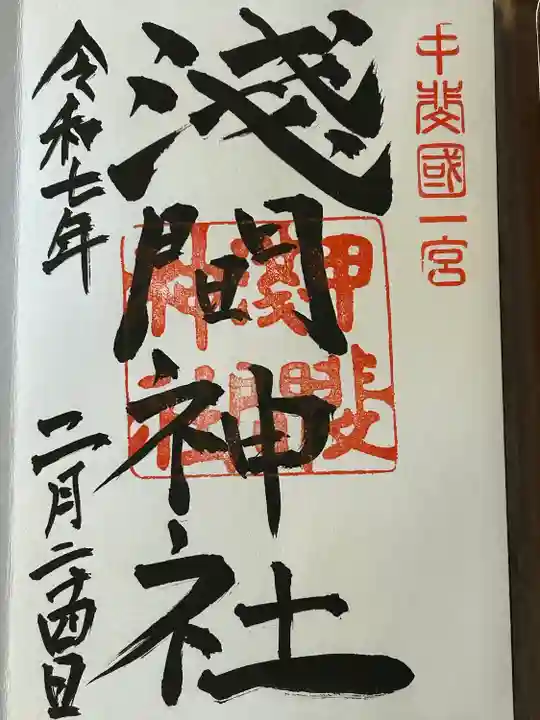 甲斐國一宮
淺間神社
甲斐
淺間
神社
令和七年
二月二十四日